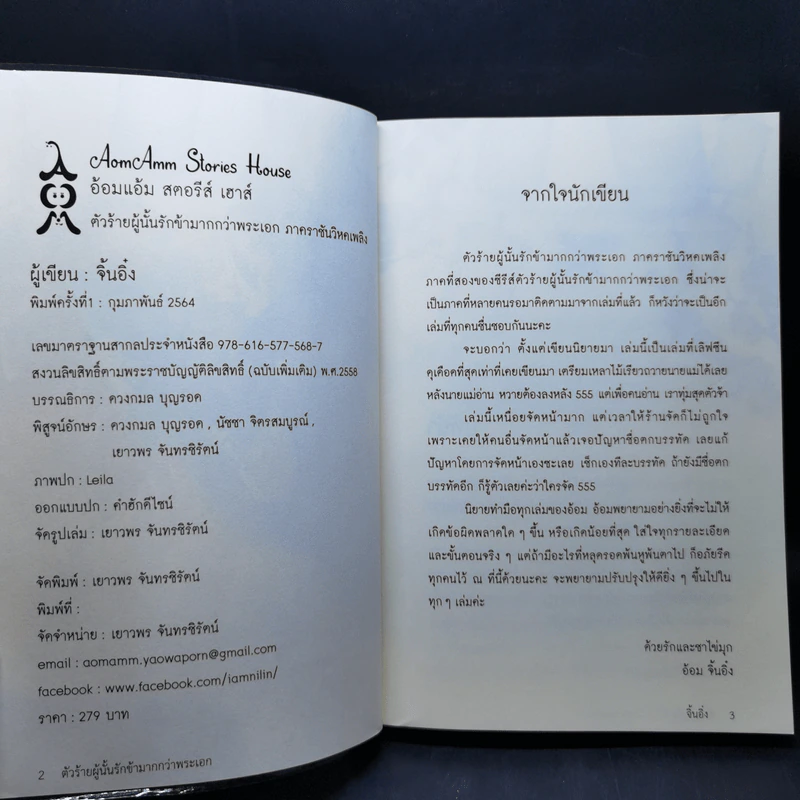 AomAmm Stories House
อ้อมแอ้ม สตอรีส์ เฮาส์
ตัวร้ายผู้นั้นรักข้ามากกว่าพระเอก ภาคราชันวิหคเพลิง
ผู้เขียน : จิ้นอิ๋ง
พิมพ์ครั้งที่1 : กุมภาพันธ์ 2564
เลขมาตราฐานสากลประจำหนังสือ 978-616-577-568-7
สงวนลิขสิทธิ์ตามพระราชบัญญัติลิขสิทธิ์ (ฉบับเพิ่มเติม) พ.ศ.2558
บรรณธิการ : ดวงกมล บุญรอด
พิสูจน์อักษร : ดวงกมล บุญรอด , นัชชา จิตรสมบูรณ์ ,
เยาวพร จันทรชิรัตน์
ภาพปก : Leila
ออกแบบปก : คำฮักดีไซน์
จัดรูปเล่ม : เยาวพร จันทรชิรัตน์
จัดพิมพ์ : เยาวพร จันทรชิรัตน์
พิมพ์ที่ :
จัดจำหน่าย : เยาวพร จันทรชิรัตน์
email : aomamm.yaowaporn@gmail.com
facebook : www.facebook.com/iamnilin/
ราคา : 279 บาท
2 ตัวร้ายผู้นั้นรักข้ามากกว่าพระเอก
จากใจนักเขียน
ตัวร้ายผู้นั้นรักข้ามากกว่าพระเอก ภาคราชันวิหคเพลิง
ภาคที่สองของซีรีส์ตัวร้ายผู้นั้นรักข้ามากกว่าพระเอก ซึ่งน่าจะ
เป็นภาคที่หลายคนรอมาติดตามมาจากเล่มที่แล้ว ก็หวังว่าจะเป็นอีก
เล่มที่ทุกคนชื่นชอบกันนะคะ
จะบอกว่า ตั้งแต่เขียนนิยายมา เล่มนี้เป็นเล่มที่เลิฟซีน
ดุเดือดที่สุดเท่าที่เคยเขียนมา เตรียมเหลาไม้เรียวถวายนายแม่ได้เลย
หลังนายแม่อ่าน หวายต้องลงหลัง 555 แต่เพื่อคนอ่าน เราทุ่มสุดตัวจ้า
เล่มนี้เหนื่อยจัดหน้ามาก แต่เวลาให้ร้านจัดก็ไม่ถูกใจ
เพราะเคยให้คนอื่นจัดหน้าแล้วเจอปัญหาชื่อตกบรรทัด เลยแก้
ปัญหาโดยการจัดหน้าเองซะเลย เช็กเองทีละบรรทัด ถ้ายังมีชื่อตก
บรรทัดอีก ก็รู้ตัวเลยค่ะว่าใครจัด 555
นิยายทำมือทุกเล่มของอ้อม อ้อมพยายามอย่างยิ่งที่จะไม่ให้
เกิดข้อผิดพลาดใด ๆ ขึ้น หรือเกิดน้อยที่สุด ใส่ใจทุกรายละเอียด
และขั้นตอนจริง ๆ แต่ถ้ามีอะไรที่หลุดรอดพ้นหูพ้นตาไป ก็อภัยรีด
ทุกคนไว้ ณ ที่นี้ด้วยนะคะ จะพยายามปรับปรุงให้ดียิ่ง ๆ ขึ้นไปใน
ทุก ๆ เล่มค่ะ
ด้วยรักและชาไข่มุก
อ้อม จิ้นอิ๋ง
จิ้นอิ๋ง 3